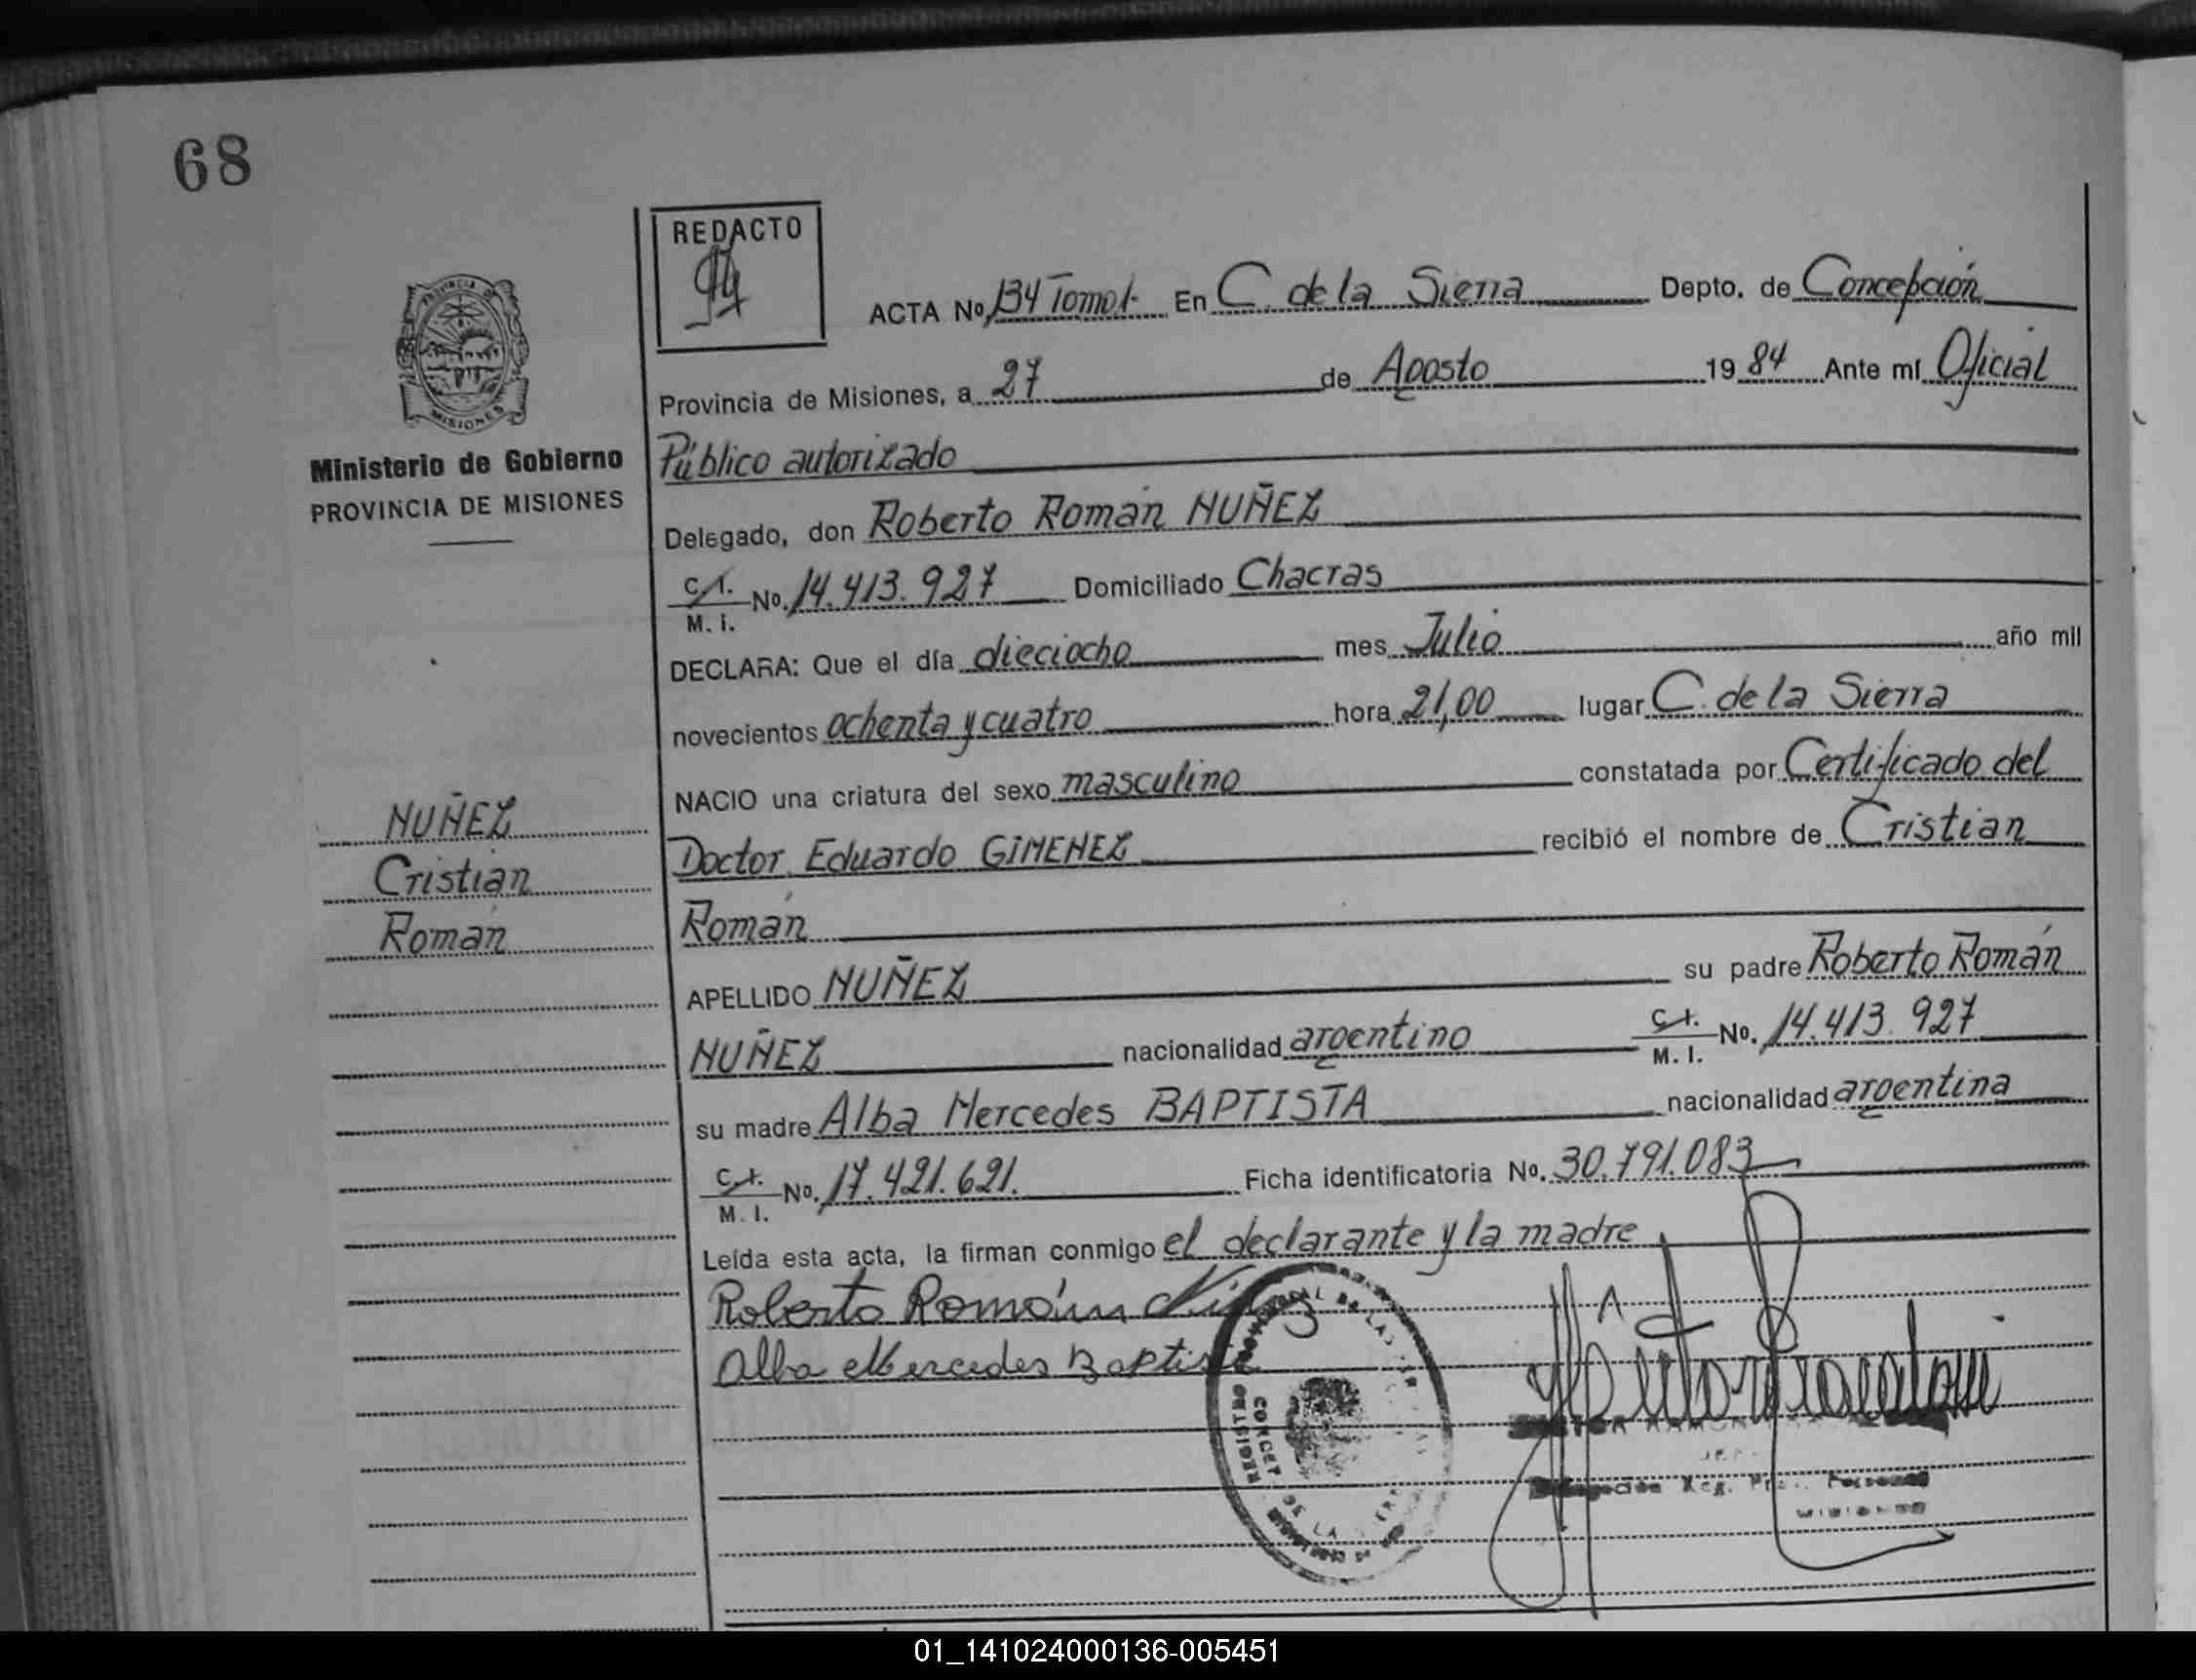 68
REDACTO
ACTA No 134 Tomo I- En C. de la Sierra Depto. de Concepción
Provincia de Misiones, a 27 de Agosto 1984 Ante mí Oficial
Público autorizado
Delegado, don Roberto Román NUÑEZ
C/I. M. I. No. 14.413.927 Domiciliado Chacras
DECLARA: Que el día dieciocho mes Julio año mil
novecientos ochenta y cuatro hora 21,00 lugar C. de la Sierra
NACIO una criatura del sexo masculino constatada por Certificado del
Doctor Eduardo GIMENEZ recibió el nombre de Cristian
Román
APELLIDO NUÑEZ su padre Roberto Román
NUÑEZ nacionalidad argentino C.I. M. I. No. 14.413.927
su madre Alba Mercedes BAPTISTA nacionalidad argentina
C.I. M. I. No. 17.421.621. Ficha identificatoria No. 30.791.083
Leída esta acta, la firman conmigo el declarante y la madre
Roberto Román
Alba Mercedes Baptista
PROVINCIA DE
MISIONES
Ministerio de Gobierno
PROVINCIA DE MISIONES
NUÑEZ
Cristian
Román
REGISTRO PROVINCIAL DE LAS
DE LA
Reg.
01_141024000136-005451